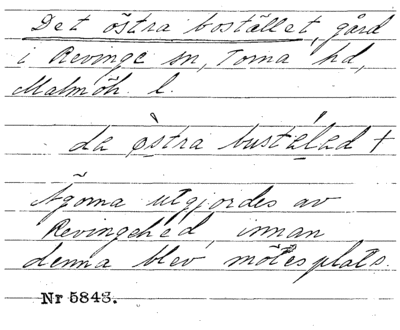 Det östra bostället, gård
i Revinge sn, Torna hd,
Malmöh. l.
da östra bustälad +
Ägorna utgjordes av
Revingehed, innan
denna blev mötesplats.
Nr 5843.